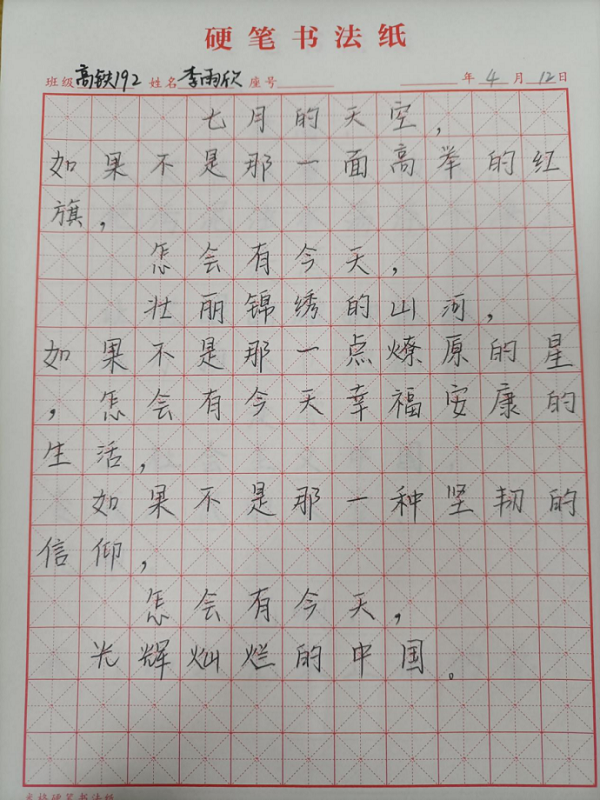 硬笔书法纸
班级 高铁192 姓名 李雨欣 座号 年 4 月 12 日
七月的天空，
如果不是那一面高举的红
旗，
怎会有今天，
壮丽锦绣的山河，
如果不是那一点燎原的星
，怎会有今天幸福安康的
生活，
如果不是那一种坚韧的
信仰，
怎会有今天，
光辉灿烂的中国。